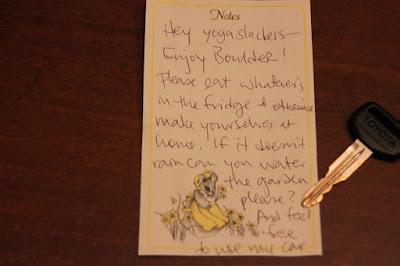 Notes
Hey yogaslackers—
Enjoy Boulder!
Please eat whatever's
in the fridge & otherwise
make yourselves at
home. If it doesn't
rain can you water
the garden
please?
And feel
free
to use my car
TOYOTA